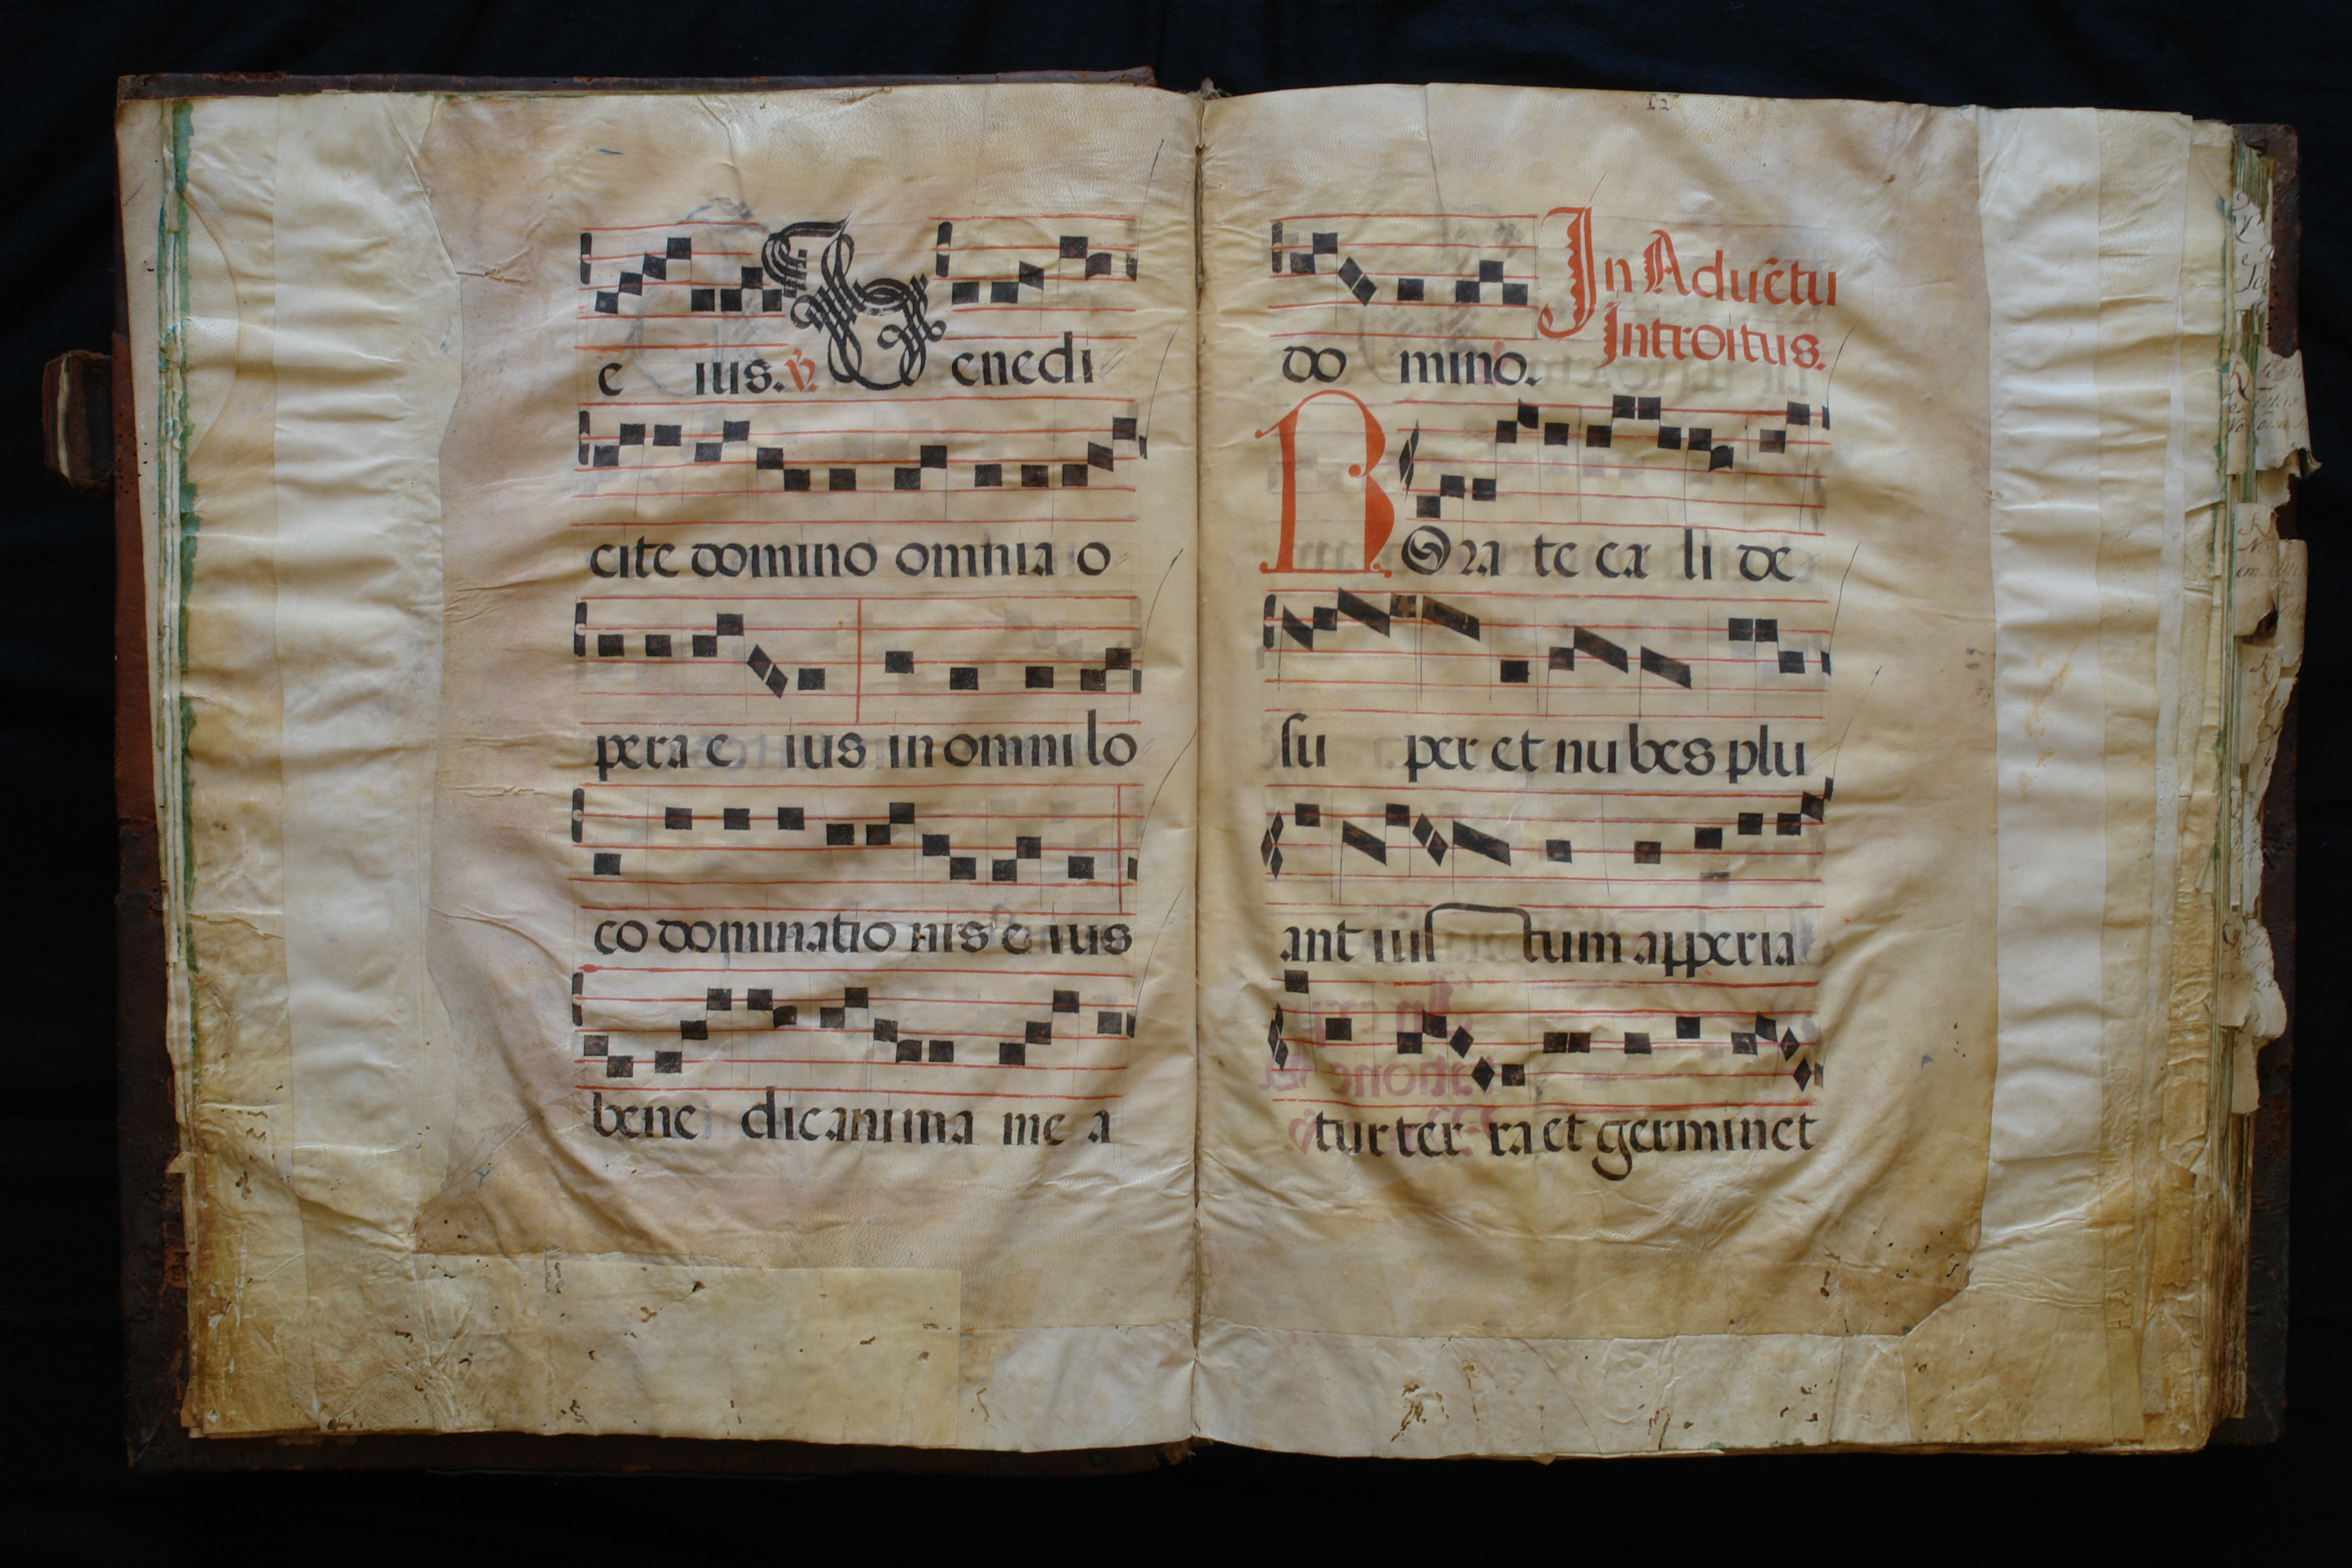 e ius. V. Benedi
cite domino omnia o
pera e ius in omni lo
co dominatio nis e ius
bene dic anima me a
12
do mino. In Aduētu
Introitus.
ROra te cæ li de
su per et nu bes plu
ant ius tum apperia
tur ter ra et germinet